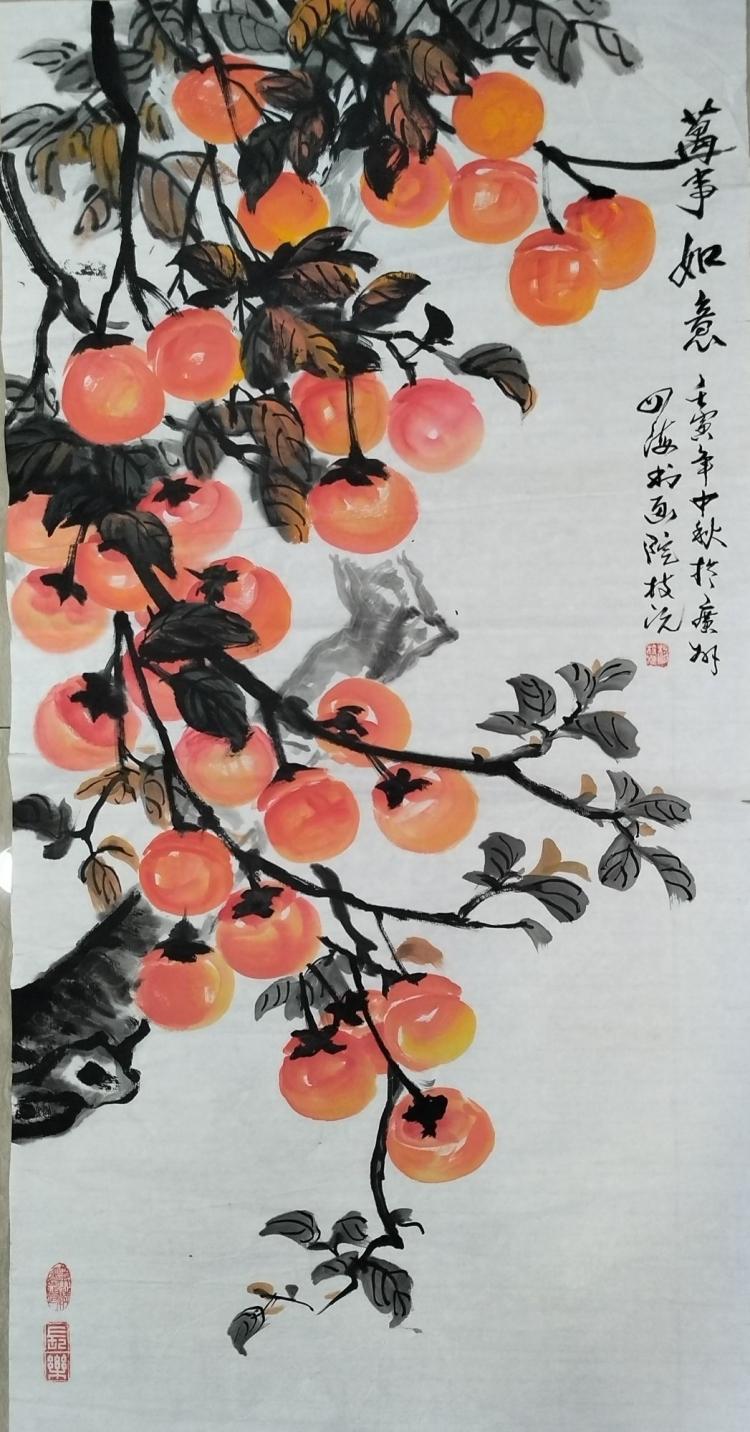 萬事如意
壬寅年中秋於廣州
四海书画院枝沅
長樂